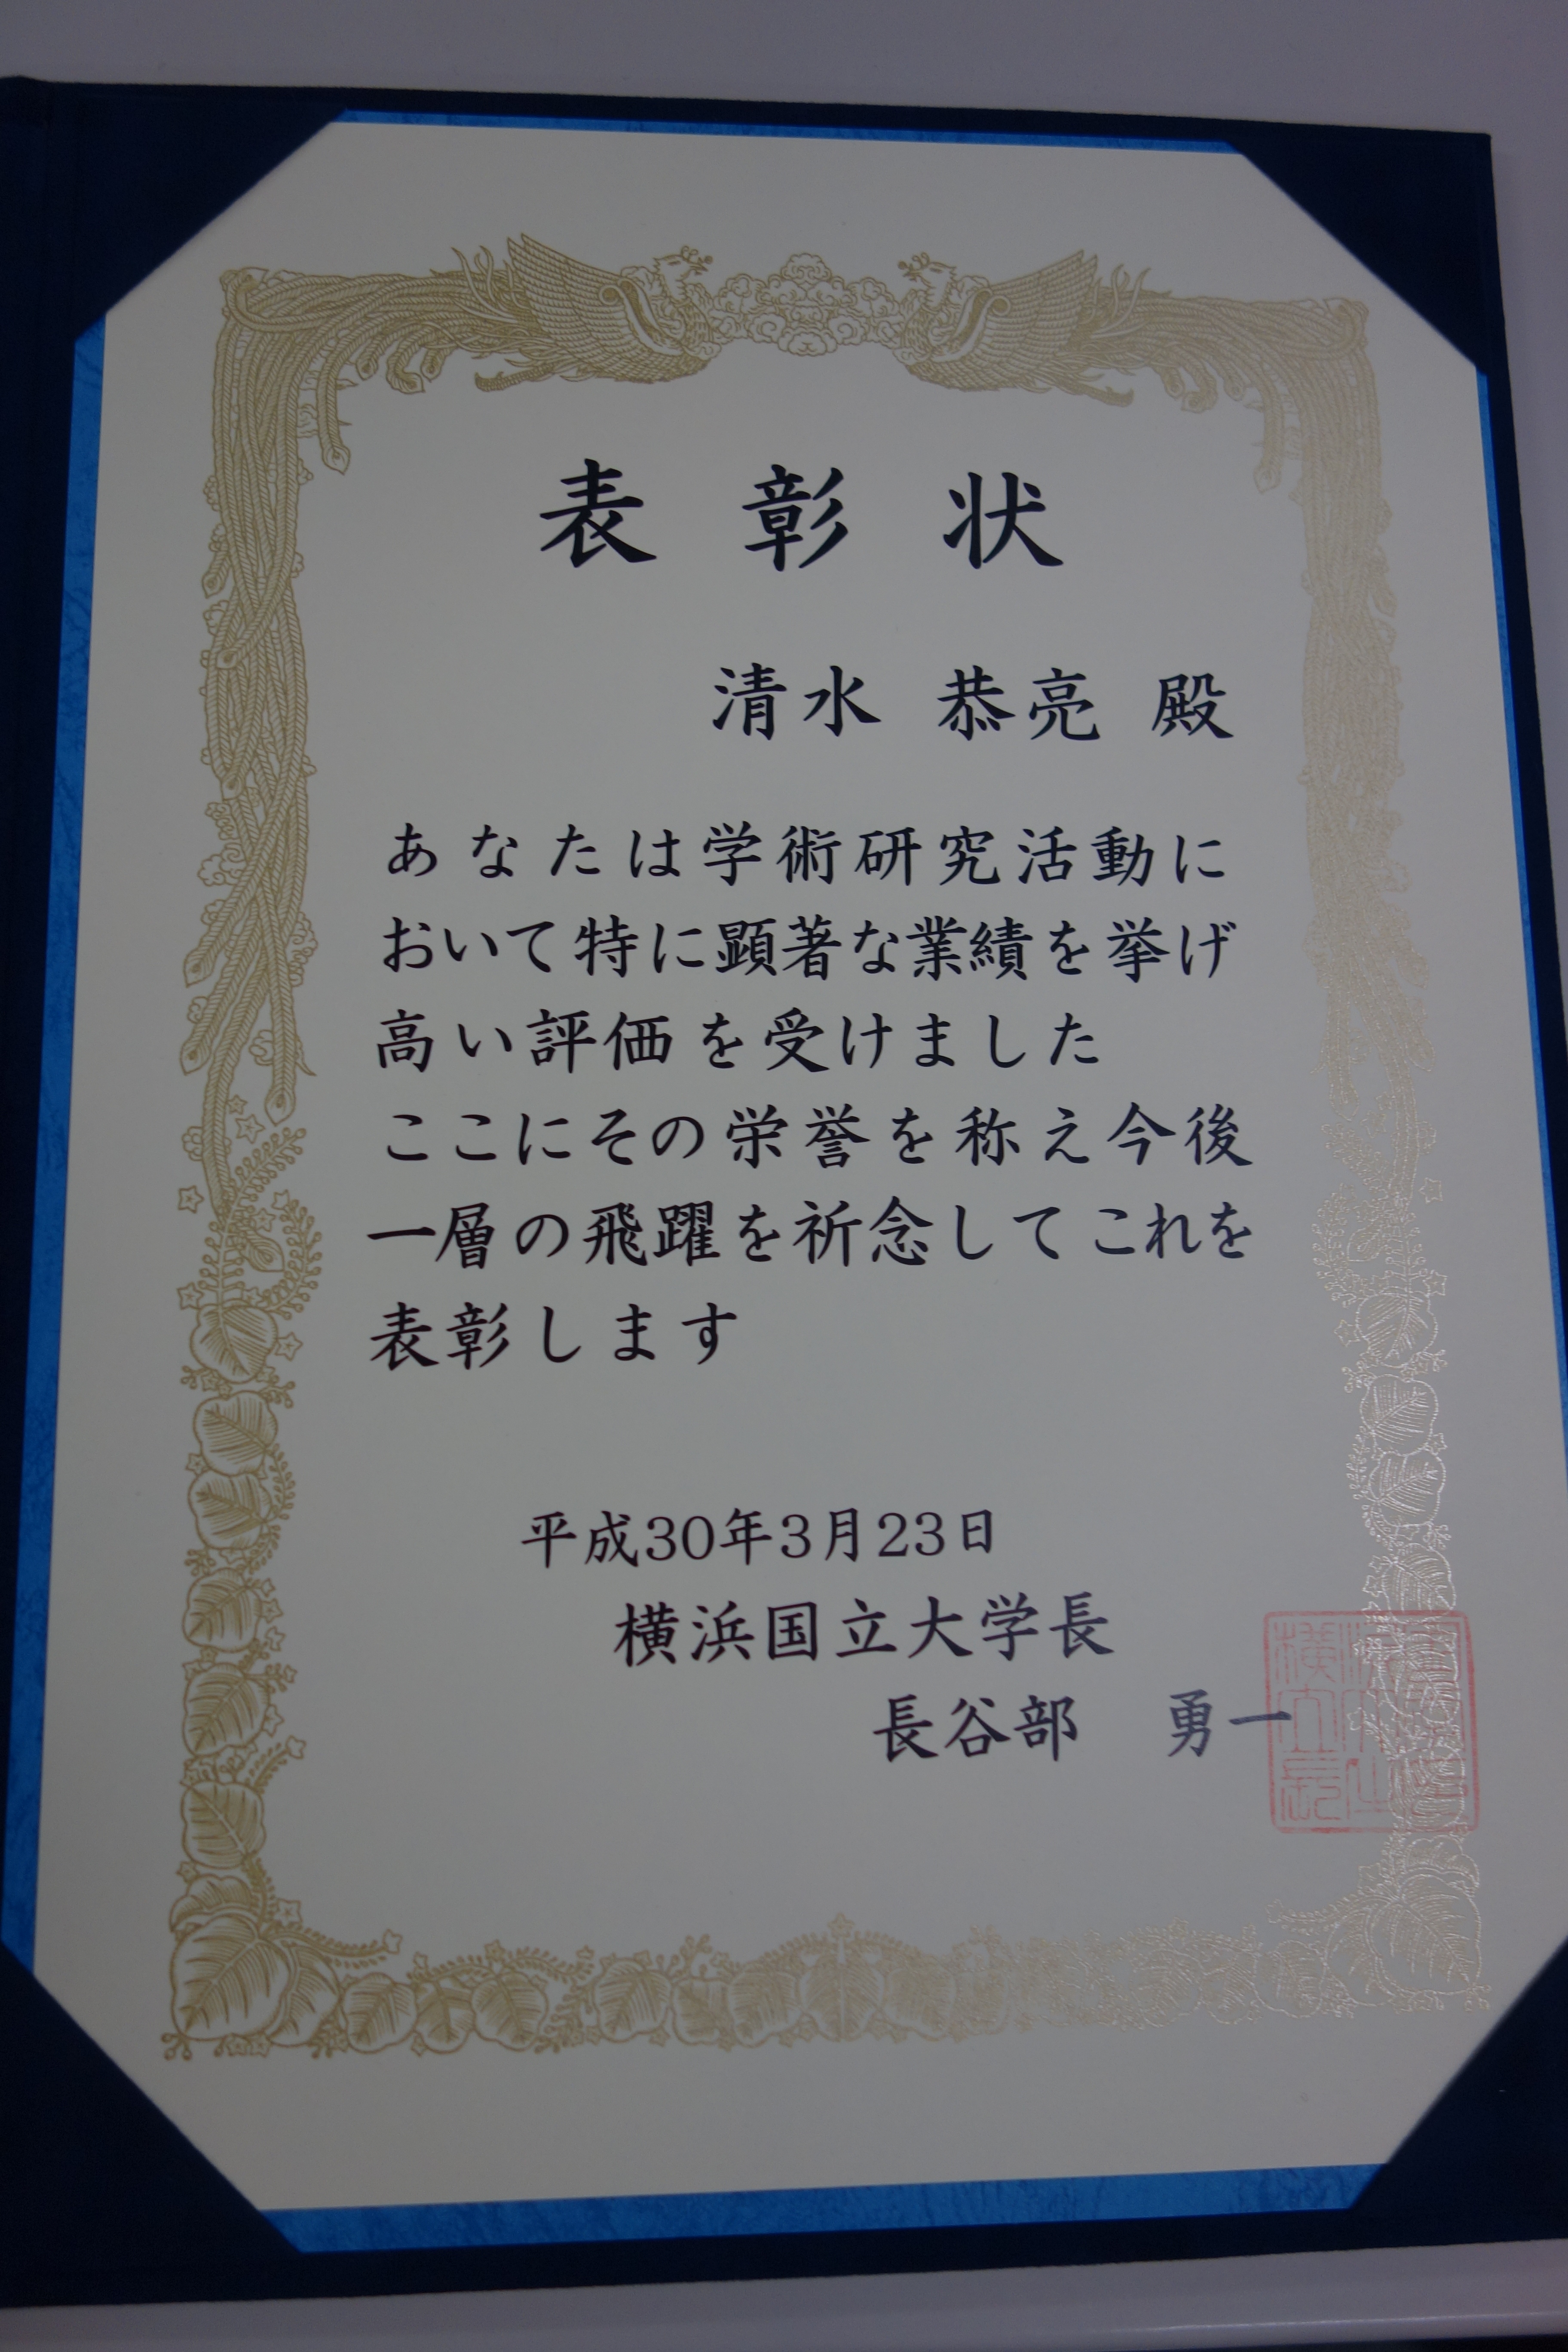 表彰状
清水 恭亮 殿
あなたは学術研究活動に
おいて特に顕著な業績を挙げ
高い評価を受けました
ここにその栄誉を称え今後
一層の飛躍を祈念してこれを
表彰します
平成30年3月23日
横浜国立大学長
長谷部 勇一